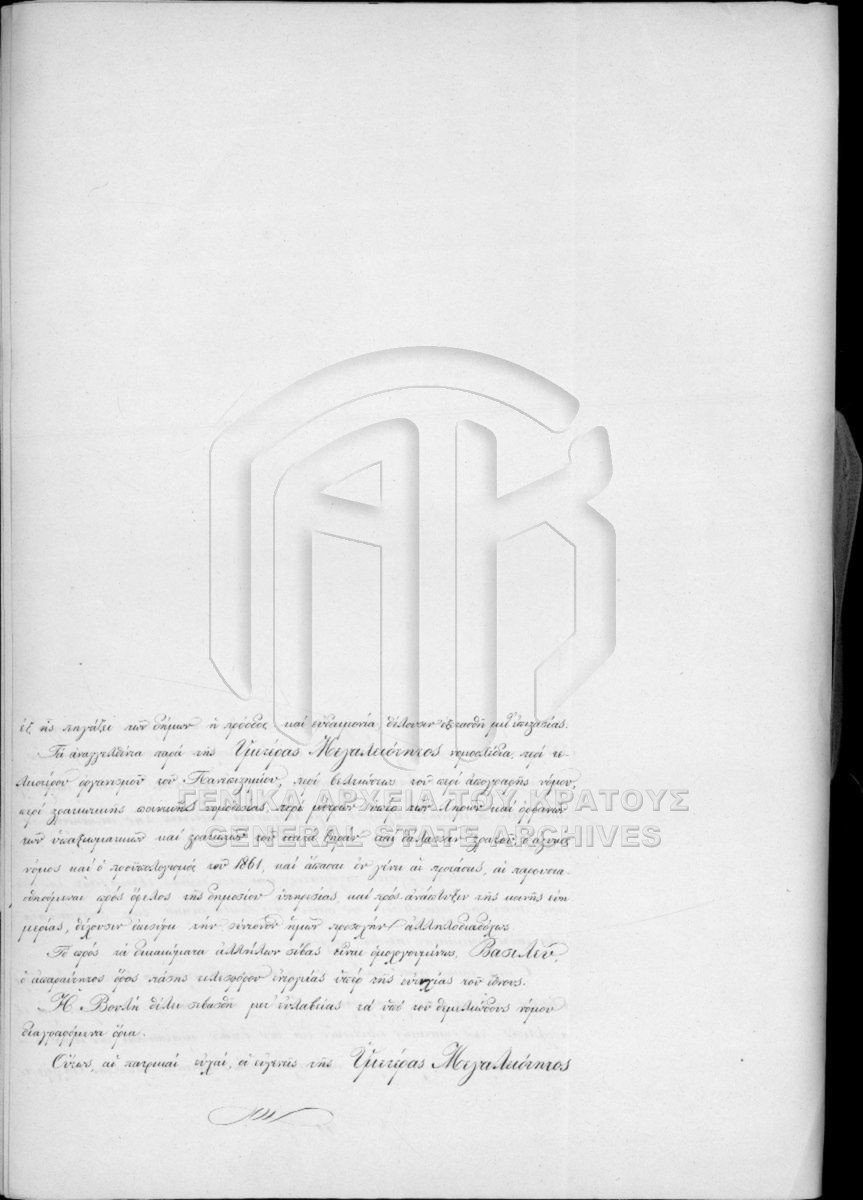 ἐξ ἧς πηγάζει τῶν δήμων ἡ πρόοδος καὶ εὐδαιμονία, θέλουσιν ἐξετασθῆ μετ' ἐπιστασίας.
Τὰ ἀναγγελθέντα παρὰ τῆς Ὑμετέρας Μεγαλειότητος νομοσχέδια, περὶ τε-
λειοτέρου ὀργανισμοῦ τοῦ Πανεπιστημίου, περὶ βελτιώσεως τοῦ περὶ ἀπογραφῆς νόμου,
περὶ στρατιωτικῆς ποινικῆς νομοθεσίας, περὶ μέτρων ὑπὲρ τῶν χηρῶν καὶ ὀρφανῶν
τῶν ὑπαξιωματικῶν καὶ στρατιωτῶν τοῦ κατὰ ξηρὰν καὶ θάλασσαν στρατοῦ, ὁ
νόμος καὶ ὁ προϋπολογισμὸς τοῦ 1861, καὶ ἅπασαι ἐν γένει αἱ προτάσεις, αἱ παρουσια-
σθησόμεναι πρὸς ὄφελος τῆς δημοσίου ὑπηρεσίας, καὶ πρὸς ἀνάπτυξιν τῆς κοινῆς εὐη-
μερίας, θέλουσιν ἐπισύρει τὴν σύντονον ἡμῶν προσοχὴν ἀλληλοδιαδόχως.
Τὸ πρὸς τὰ δικαιώματα ἀλλήλων σέβας εἶναι ὁμολογουμένως, Βασιλεῦ,
ὁ ἀπαραίτητος ὅρος πάσης τελεσφόρου ἐνεργείας ὑπὲρ τῆς εὐτυχίας τοῦ ἔθνους.
Ἡ Βουλὴ θέλει σεβασθῆ μετ' εὐλαβείας τὰ ὑπὸ τοῦ θεμελιώδους νόμου
διαγραφόμενα ὅρια.
Οὕτως, αἱ πατρικαὶ εὐχαί, αἱ εὐγενεῖς τῆς Ὑμετέρας Μεγαλειότητος
ΓΕΝΙΚΑ ΑΡΧΕΙΑ ΤΟΥ ΚΡΑΤΟΥΣ
GENERAL STATE ARCHIVES